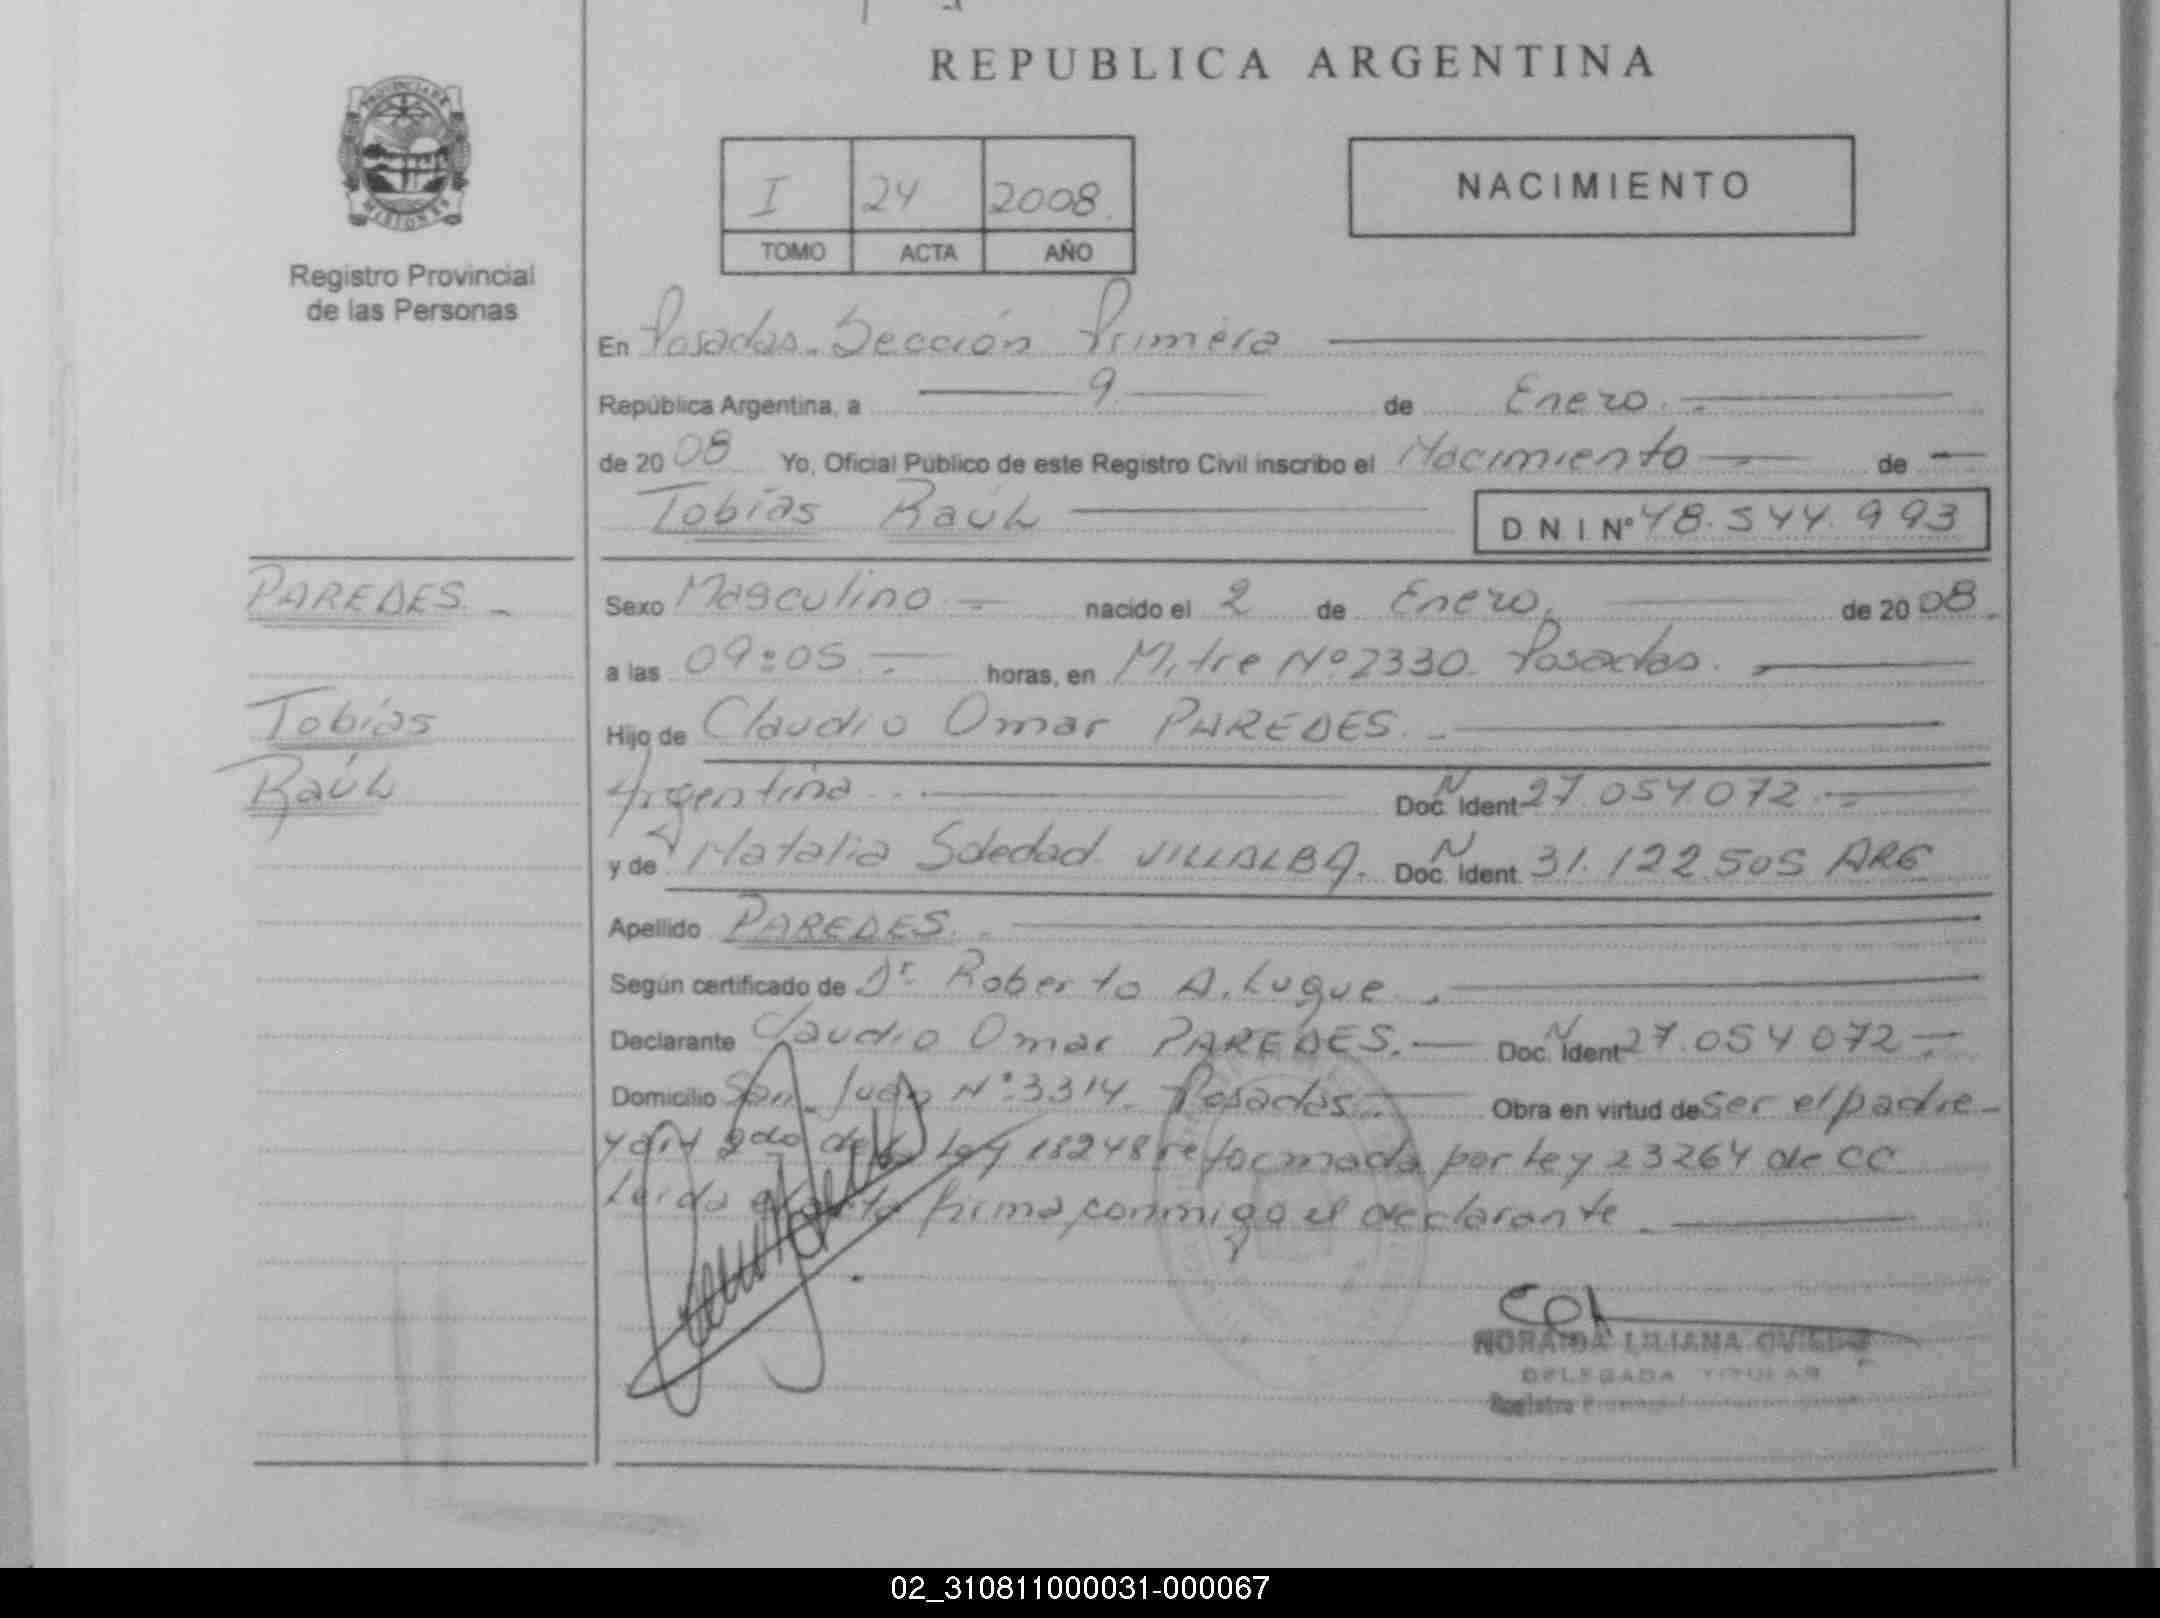 REPUBLICA ARGENTINA
PROVINCIA DE
MISIONES
Registro Provincial
de las Personas
I 24 2008.
TOMO ACTA AÑO
NACIMIENTO
En Posadas. Sección Primera
República Argentina, a 9 de Enero.
de 2008 Yo, Oficial Público de este Registro Civil inscribo el Nacimiento de
Tobías Raúl D N I Nº 48.544.993
PAREDES.
Tobías
Raúl
Sexo Masculino nacido el 2 de Enero. de 2008
a las 09:05 horas, en Mitre Nº 2330. Posadas.
Hijo de Claudio Omar PAREDES.
Argentina Doc. N Ident 27.054.072
y de Natalia Soledad VILLALBA. Doc. N Ident. 31.122.505 ARG
Apellido PAREDES.
Según certificado de Dr. Roberto A. Luque.
Declarante Claudio Omar PAREDES. Doc. N Ident 27.054.072
Domicilio San Juan Nº 3314. Posadas. Obra en virtud de Ser el padre
2do de la Ley 18248 reformada por Ley 23264 de CC
Leída el acta firma conmigo el declarante.
LILIANA OVIEDO
DELEGADA TITULAR
Registro
02_310811000031-000067